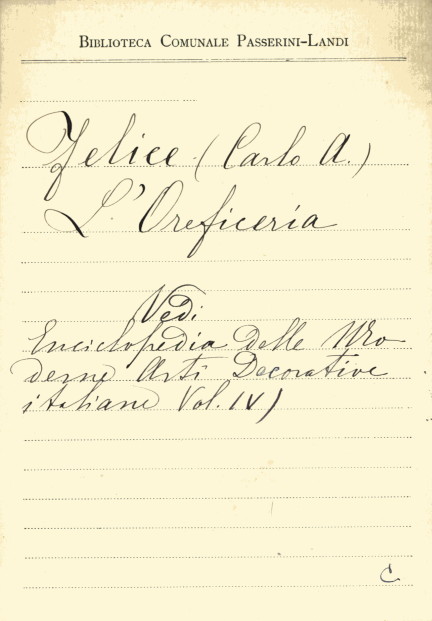 BIBLIOTECA COMUNALE PASSERINI-LANDI
Felice (Carlo A.)
L'Oreficeria
Vedi
Enciclopedia delle Mo-
derne Arti Decorative
italiane Vol. IV)
C.